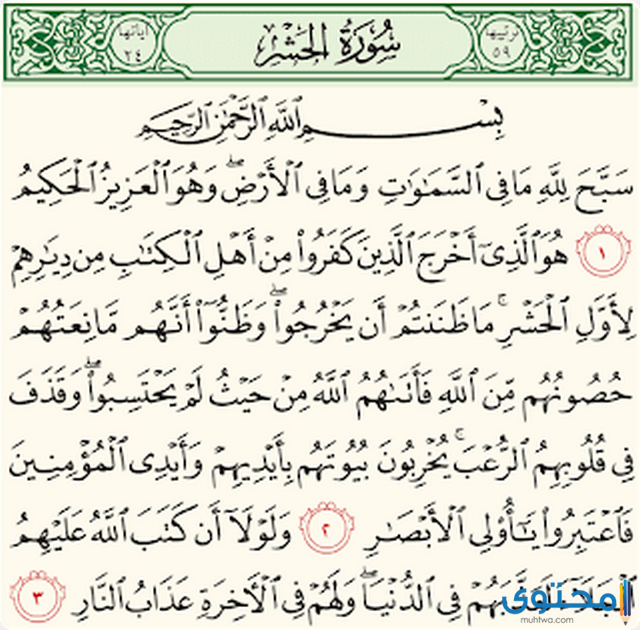 ترتيبها ٥٩ سُورَةُ الحَشْرِ آياتها ٢٤
بِسْمِ اللَّهِ الرَّحْمَٰنِ الرَّحِيمِ
سَبَّحَ لِلَّهِ مَا فِي السَّمَٰوَٰتِ وَمَا فِي الْأَرْضِ ۖ وَهُوَ الْعَزِيزُ الْحَكِيمُ
١ هُوَ الَّذِىٓ أَخْرَجَ الَّذِينَ كَفَرُوا۟ مِنْ أَهْلِ الْكِتَٰبِ مِن دِيَٰرِهِمْ
لِأَوَّلِ الْحَشْرِ ۚ مَا ظَنَنتُمْ أَن يَخْرُجُوا۟ ۖ وَظَنُّوٓا۟ أَنَّهُم مَّانِعَتُهُمْ
حُصُونُهُم مِّنَ اللَّهِ فَأَتَىٰهُمُ اللَّهُ مِنْ حَيْثُ لَمْ يَحْتَسِبُوا۟ ۖ وَقَذَفَ
فِي قُلُوبِهِمُ الرُّعْبَ ۚ يُخْرِبُونَ بُيُوتَهُم بِأَيْدِيهِمْ وَأَيْدِى الْمُؤْمِنِينَ
فَاعْتَبِرُوا۟ يَٰٓأُو۟لِى الْأَبْصَٰرِ ٢ وَلَوْلَآ أَن كَتَبَ اللَّهُ عَلَيْهِمُ
الْجَلَآءَ لَعَذَّبَهُمْ فِى الدُّنْيَا ۖ وَلَهُمْ فِى الْءَاخِرَةِ عَذَابُ النَّارِ ٣
محتوى
muhtwa.com